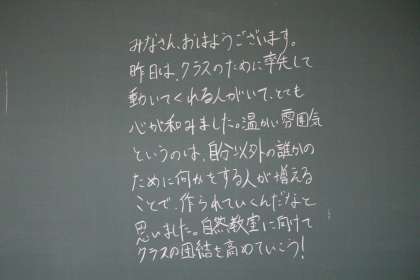 みなさん、おはようございます。
昨日は、クラスのために率先して
動いてくれる人がいて、とても
心が和みました。温かい雰囲気
というのは、自分以外の誰かの
ために何かをする人が増える
ことで、作られていくんだなと
思いました。自然教室に向けて
クラスの団結を高めていこう!